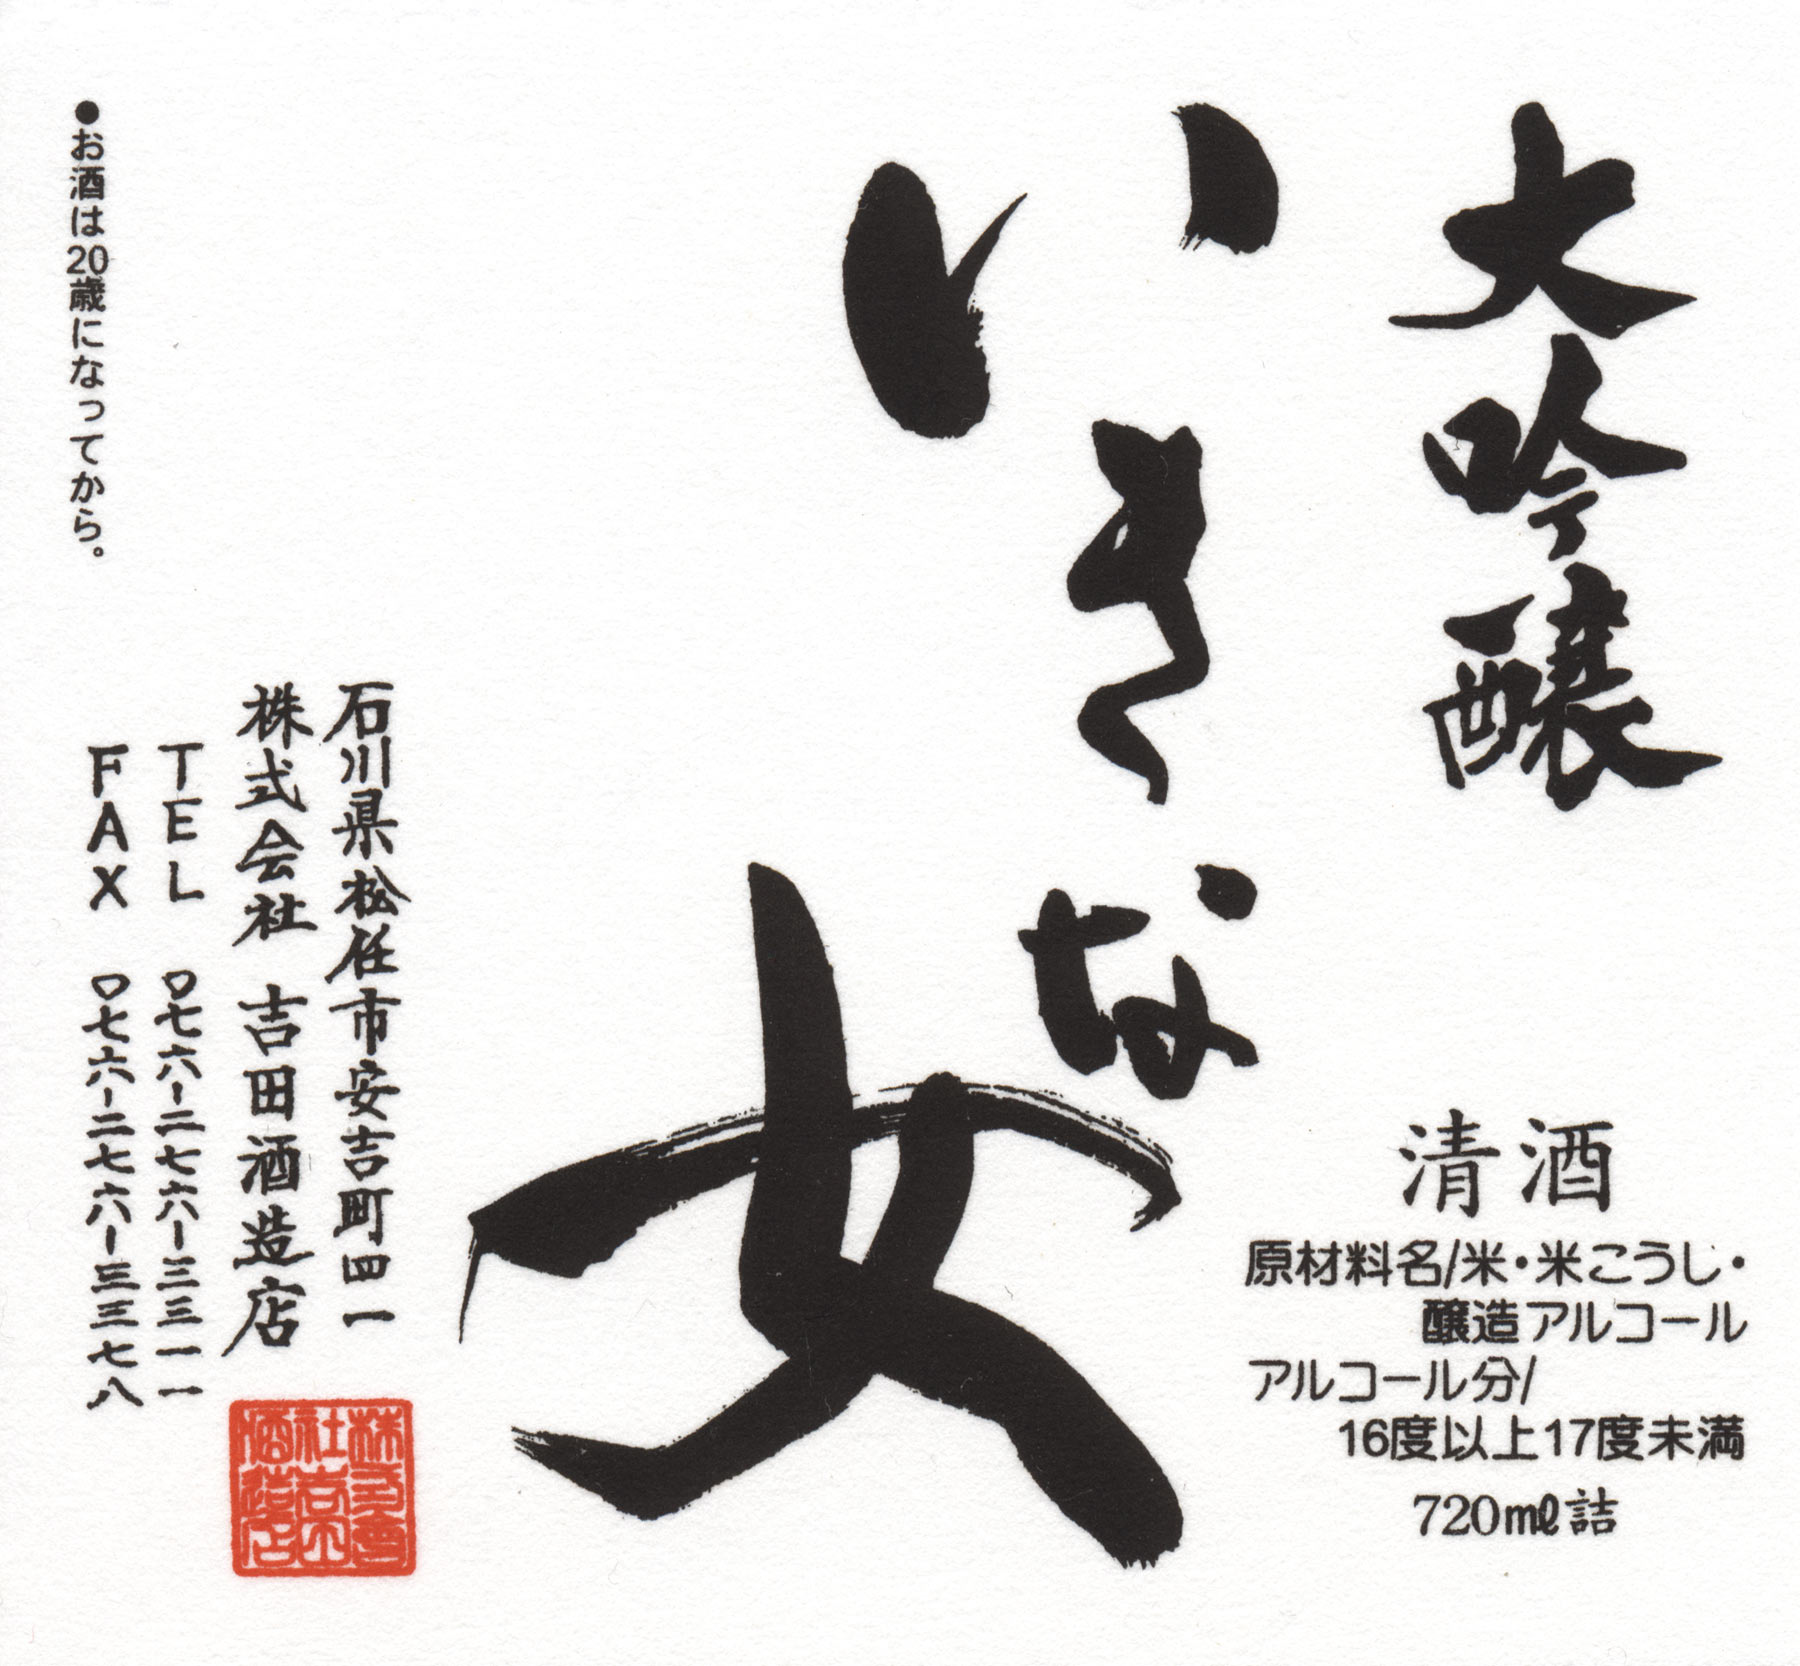 大吟醸
いきな女
清酒
原材料名/米・米こうじ・
醸造アルコール
アルコール分/
16度以上17度未満
720mℓ詰
石川県松任市安吉町四一
株式会社 吉田酒造店
TEL 〇七六-二七六-三三一一
FAX 〇七六-二七六-三三七八
●お酒は20歳になってから。